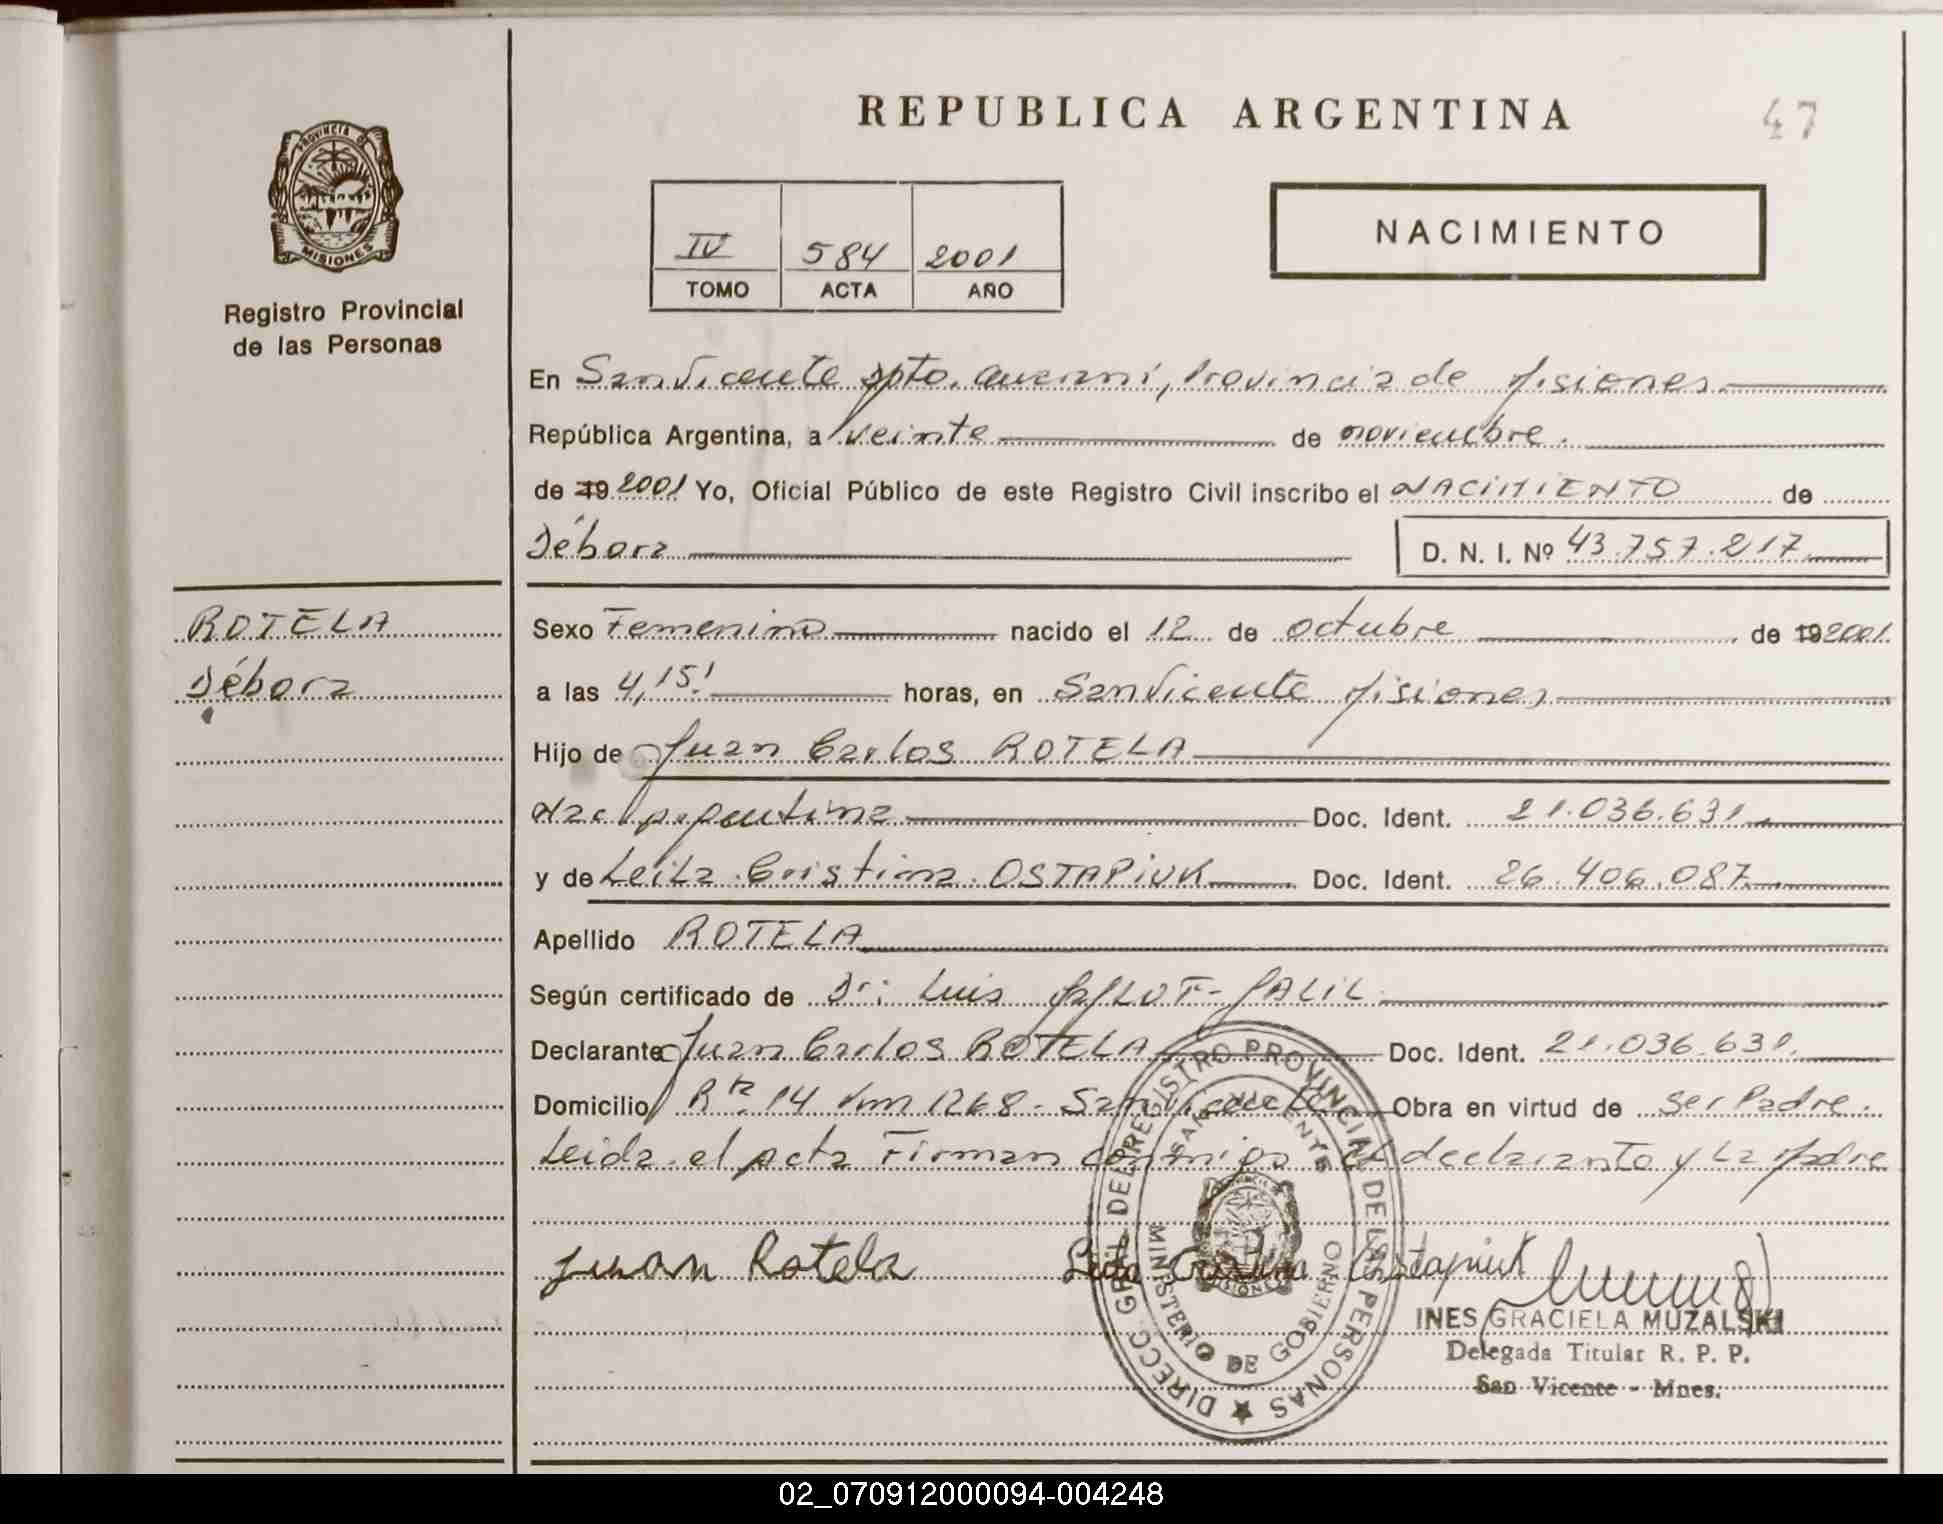 REPUBLICA ARGENTINA
47
PROVINCIA DE MISIONES
Registro Provincial
de las Personas
IV 584 2001
TOMO ACTA AÑO
NACIMIENTO
En San Vicente Dpto. Guaraní, Provincia de Misiones
República Argentina, a veinte de noviembre.
de 19 2001 Yo, Oficial Público de este Registro Civil inscribo el NACIMIENTO de
Débora D. N. I. Nº 43.757.217
ROTELA
Débora
Sexo Femenino nacido el 12 de octubre de 19 2001
a las 4,15' horas, en San Vicente Misiones
Hijo de Juan Carlos ROTELA
Nac. Argentina Doc. Ident. 21.036.631
y de Leila Cristina OSTAPIUK Doc. Ident. 26.406.087
Apellido ROTELA
Según certificado de Dr: Luis
Declarante Juan Carlos ROTELA Doc. Ident. 21.036.631.
Domicilio Rta 14 Km 1268 - San Vicente Obra en virtud de ser Padre.
Leida el acta Firman conmigo el declarante y la Madre
Juan Rotela Leila Cristina Ostapiuk
DIRECC GRAL DEL REGISTRO PROVINCIAL DE LAS PERSONAS
SAN VICENTE
MINISTERIO DE GOBIERNO
INES GRACIELA MUZALSKI
Delegada Titular R. P. P.
San Vicente - Mnes.
02_070912000094-004248